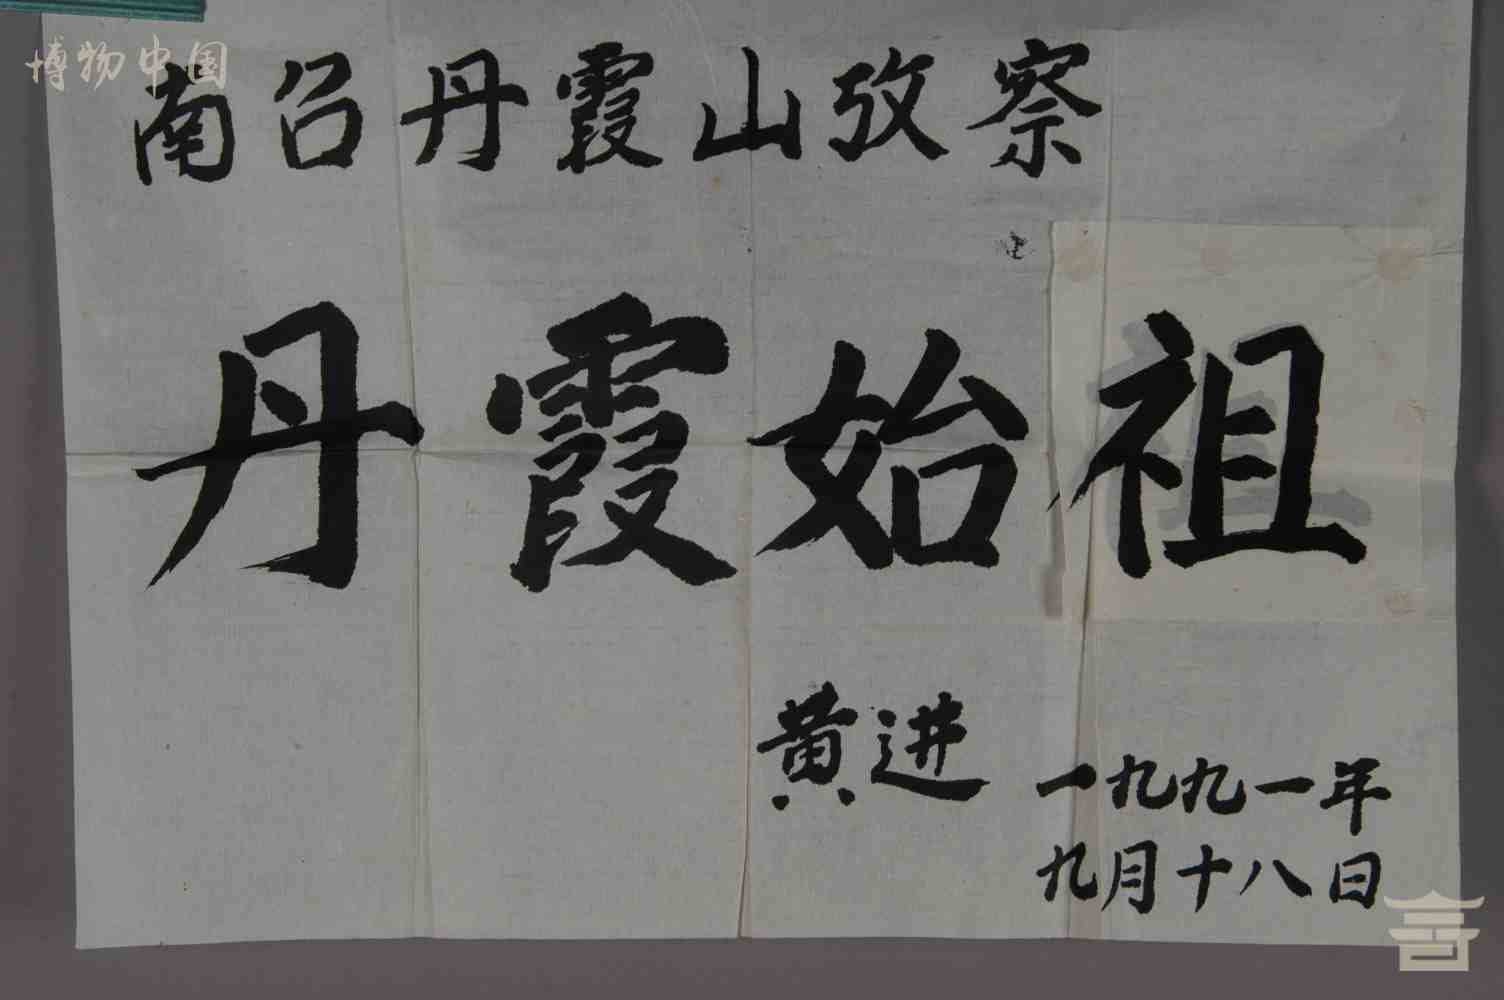 博物中国
南召丹霞山攷察
丹霞始祖
黄进
一九九一年
九月十八日